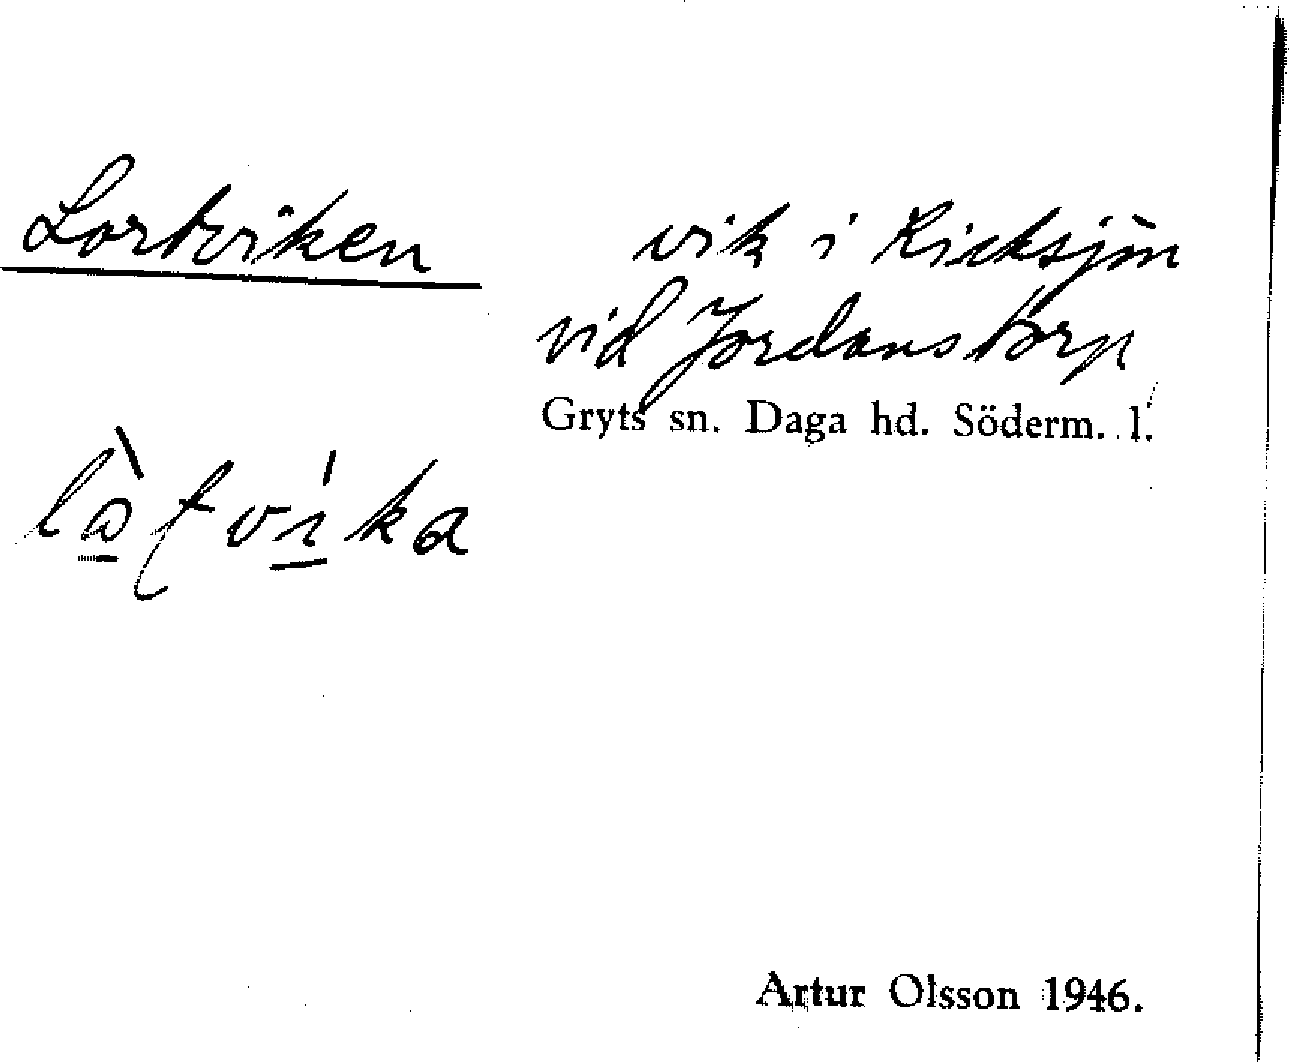 Lortviken
vik i Kicksjön
vid Jordanstorp
Gryts sn. Daga hd. Söderm. l.
Artur Olsson 1946.